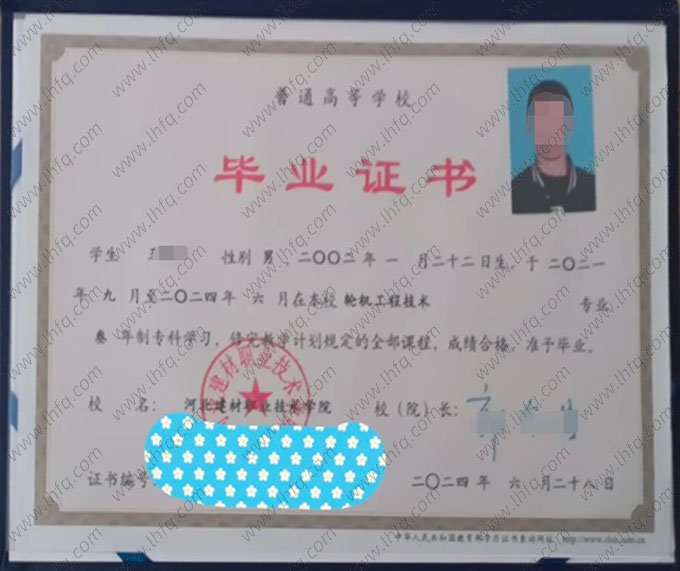 普通高等学校
毕业证书
学生 王 性别 男 ,二〇〇二年 一 月二十二日生,于二〇二一
年 九 月至二〇二四年 六 月在本校 轮机工程技术 专业
叁 年制专科学习,修完教学计划规定的全部课程,成绩合格,准予毕业。
建材职业技术
校 名: 河北建材职业技术学院 校(院)长:
证书编号 二〇二四 年 六 月二十八日
中华人民共和国教育部学历证书查询网址: http://www.chsi.com.cn
www.lhfq.com